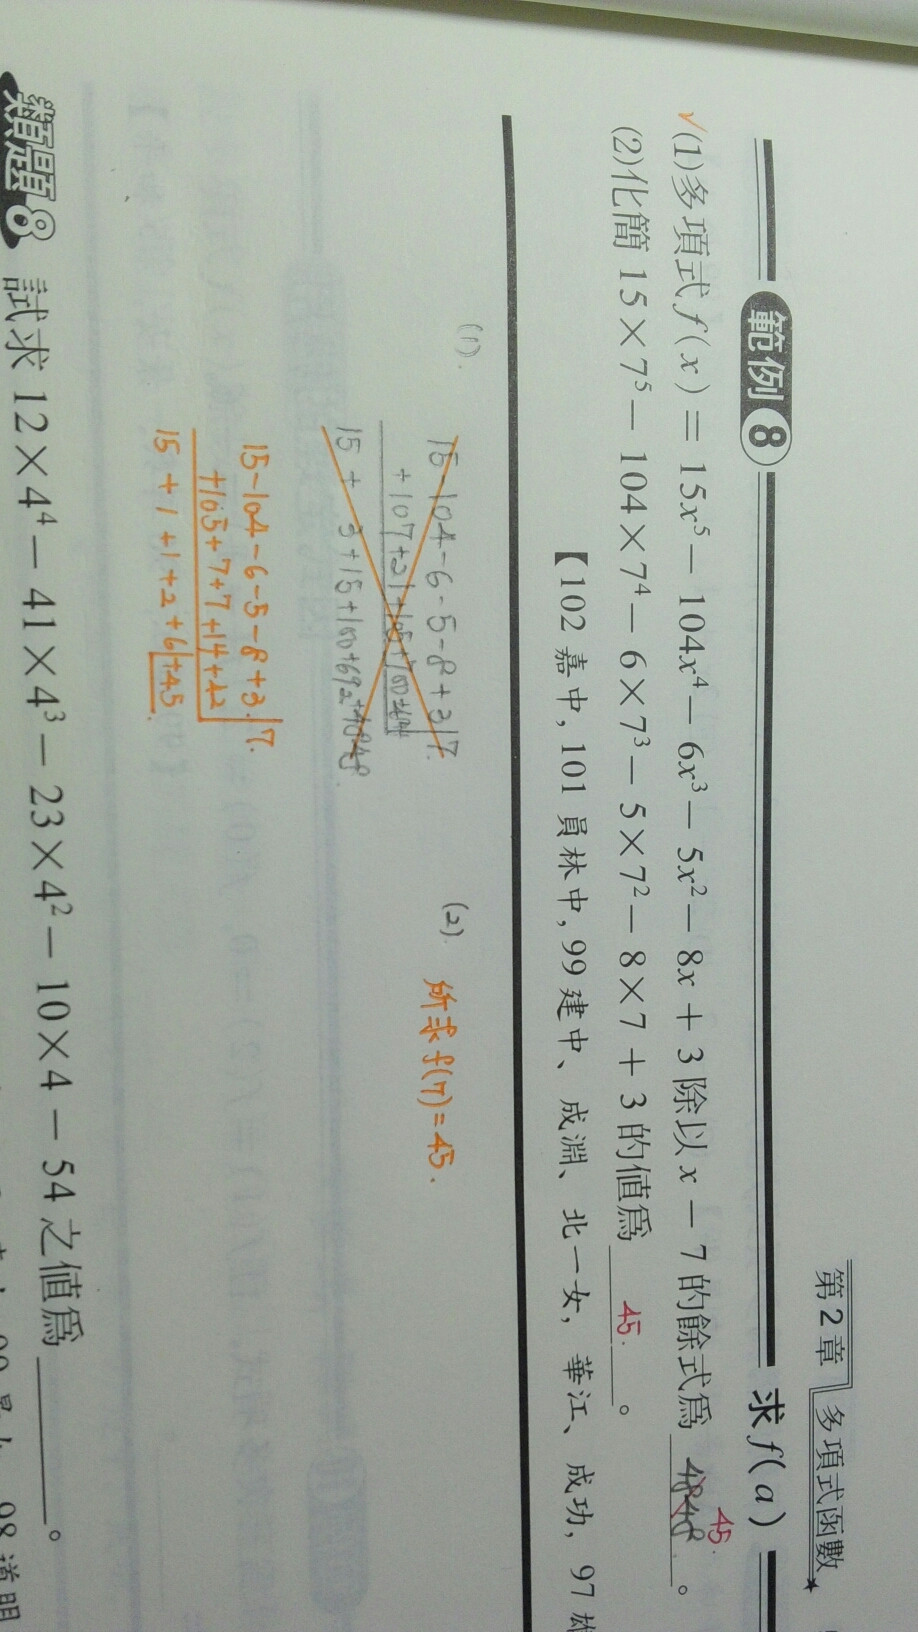 第2章 多項式函數
範例8 求f(a)
✓(1)多項式f(x)＝15x⁵－104x⁴－6x³－5x²－8x＋3除以x－7的餘式爲 4848 45. 。
(2)化簡15×7⁵－104×7⁴－6×7³－5×7²－8×7＋3的值爲 45. 。
【102嘉中, 101員林中, 99建中、成淵、北一女, 華江、成功, 97雄
(1).
15-104-6-5-8+3 7.
15-104-6-5-8+3 7.
+105+7+7+14+42
15+1+1+2+6+45.
(2).
所求f(7)=45.
類題8 試求12×4⁴－41×4³－23×4²－10×4－54之值爲 。